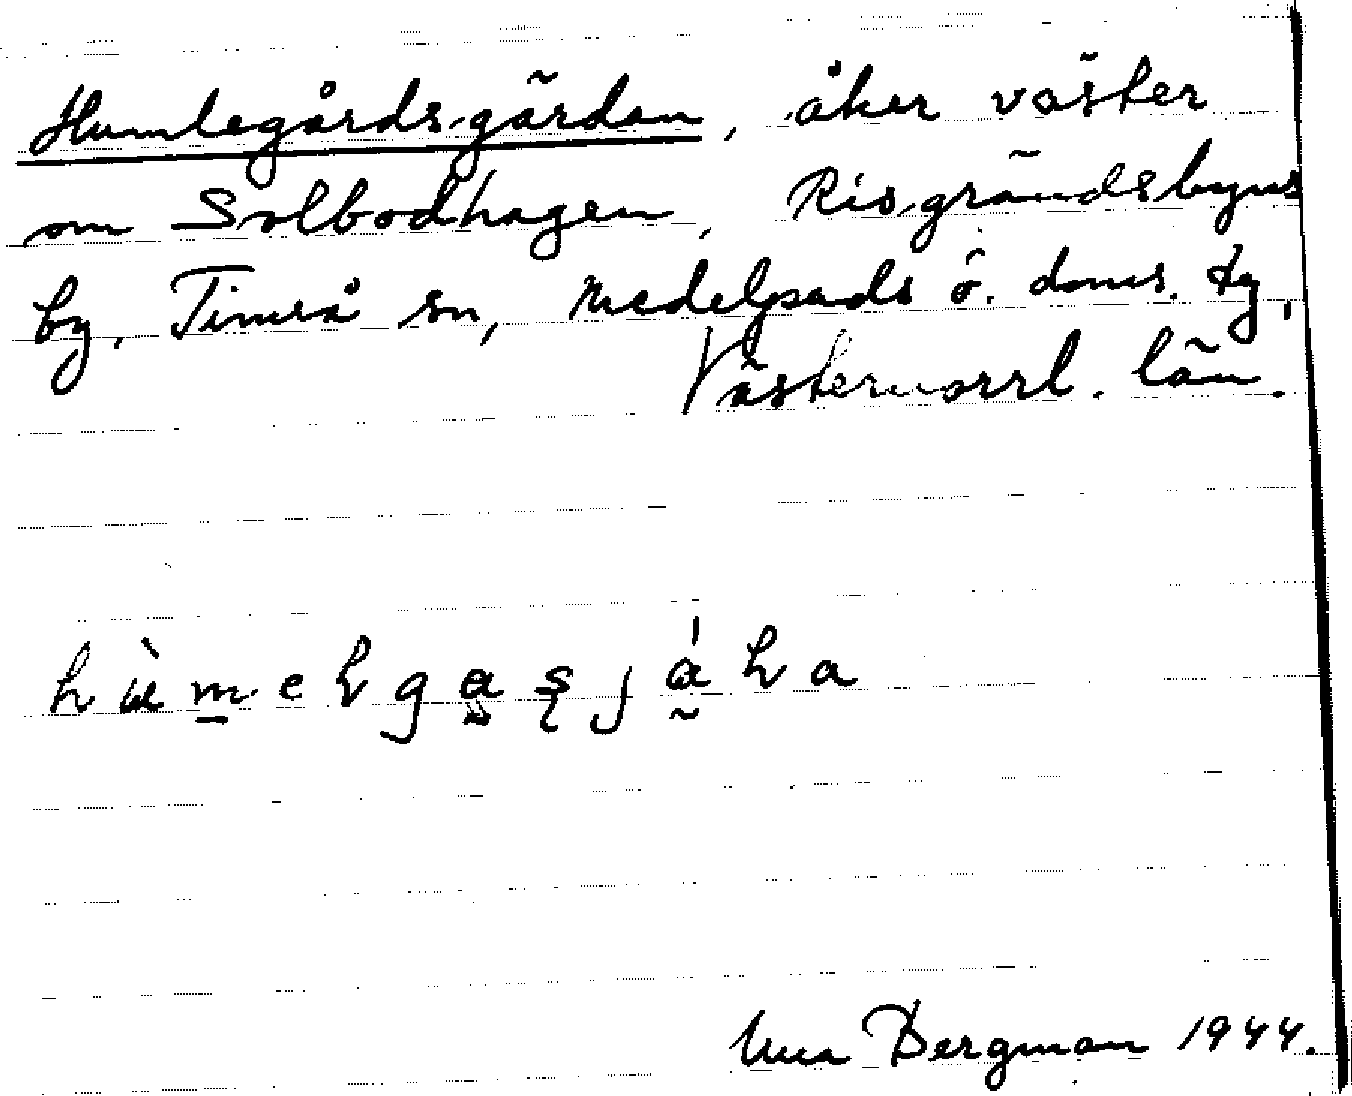 Humlegårdsgärdan, åker väster
om Solbodhagen, Risgrändsbyns
by, Timrå sn, Medelpads ö. doms. tg,
Västernorrl. län.
Una Bergman 1944.